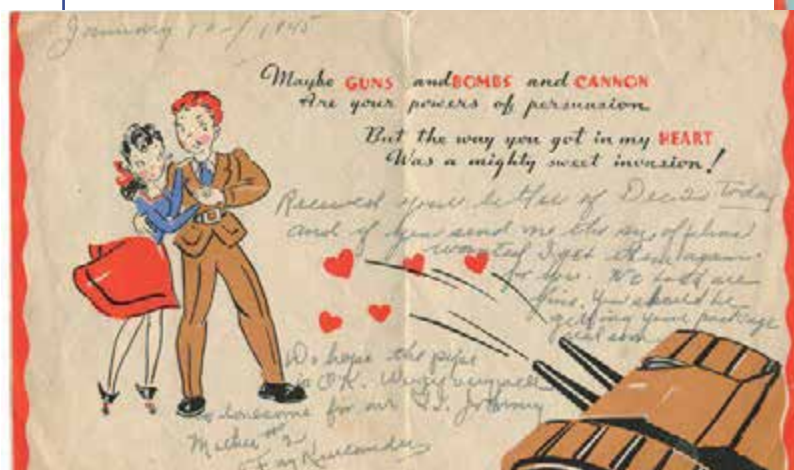 January 10 / 1945
Maybe GUNS and BOMBS and CANNON
Are your powers of persuasion
But the way you got in my HEART
Was a mighty sweet invasion!
Received your letter of Dec Today
and if you send me the
wanted I get them again
for you. We both are
fine. You should be
getting your package
real soon
We hope the pipe
is OK.
lonesome for our G.I. Johnny
Mother #2
Fay